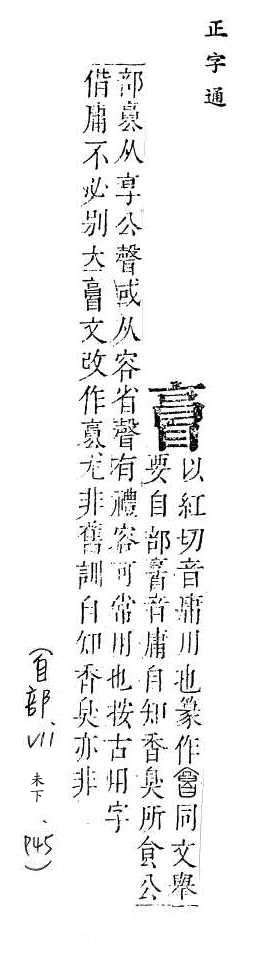 正字通
以紅切音庸用也篆作同文舉
要自部音庸自知香臭所食公
部从享公聲或从容省聲有禮容可常用也按古用字
偕庸不必别文改作尤非舊訓自知香臭亦非
(自部、VII
未下、P45)